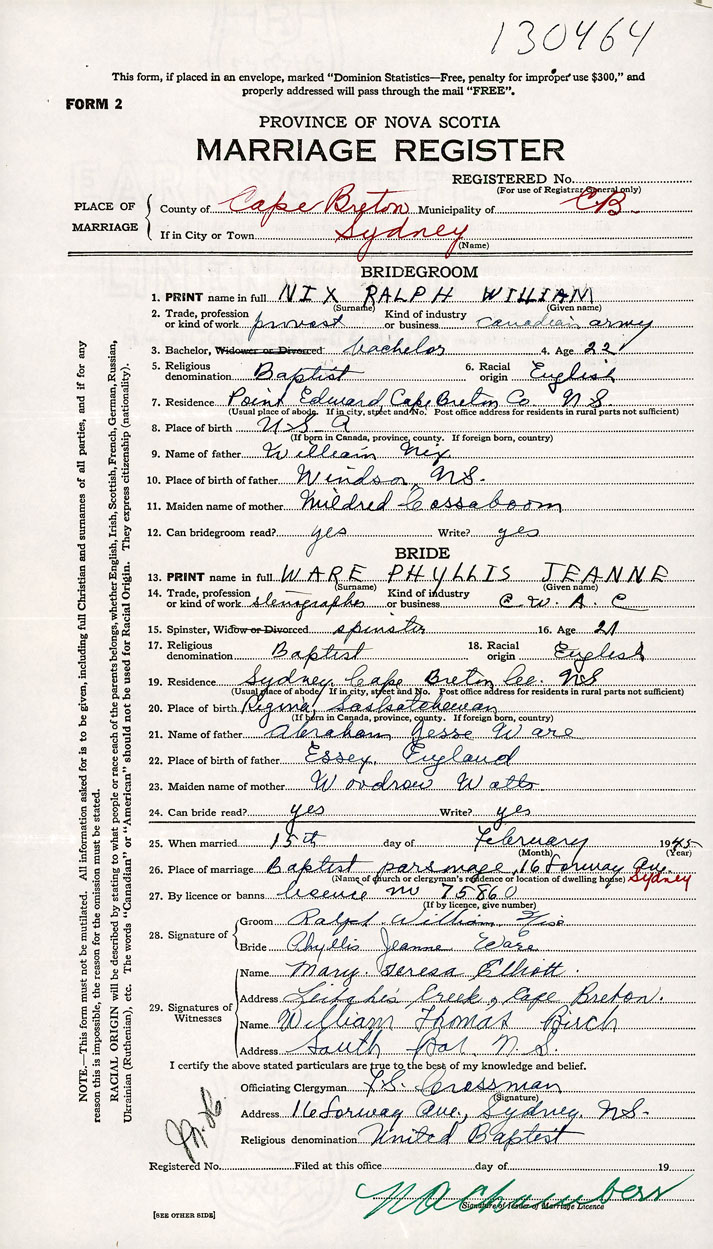 130464
This form, if placed in an envelope, marked "Dominion Statistics—Free, penalty for improper use $300," and
properly addressed will pass through the mail "FREE".
FORM 2
PROVINCE OF NOVA SCOTIA
MARRIAGE REGISTER
REGISTERED No.
(For use of Registrar General only)
PLACE OF MARRIAGE
County of Cape Breton Municipality of CB
If in City or Town Sydney
(Name)
BRIDEGROOM
1. PRINT name in full NIX RALPH WILLIAM
(Surname) (Given name)
2. Trade, profession or kind of work provost Kind of industry or business Canadian army
3. Bachelor, Widower or Divorced bachelor 4. Age 22
5. Religious denomination Baptist 6. Racial origin English
7. Residence Point Edward, Cape Breton Co. N.S.
(Usual place of abode. If in city, street and No. Post office address for residents in rural parts not sufficient)
8. Place of birth U.S.A
(If born in Canada, province, county. If foreign born, country)
9. Name of father William Nix
10. Place of birth of father Windsor, N.S.
11. Maiden name of mother Mildred Cossaboom
12. Can bridegroom read? yes Write? yes
BRIDE
13. PRINT name in full WARE PHYLLIS JEANNE
(Surname) (Given name)
14. Trade, profession or kind of work stenographer Kind of industry or business C.W.A.C
15. Spinster, Widow or Divorced spinster 16. Age 21
17. Religious denomination Baptist 18. Racial origin English
19. Residence Sydney, Cape Breton Co. NS
(Usual place of abode. If in city, street and No. Post office address for residents in rural parts not sufficient)
20. Place of birth Regina, Saskatchewan
(If born in Canada, province, county. If foreign born, country)
21. Name of father Abraham Jesse Ware
22. Place of birth of father Essex, England
23. Maiden name of mother Woodrow Watts
24. Can bride read? yes Write? yes
25. When married 15th day of February 1945
(Month) (Year)
26. Place of marriage Baptist parsonage, 16 Ave. Sydney
(Name of church or clergyman's residence or location of dwelling house)
27. By licence or banns licence no 75860
(If by licence, give number)
28. Signature of Groom Ralph William
Bride Phyllis Jeanne Ware
29. Signatures of Witnesses
Name Mary Teresa Elliott.
Address Leitches Creek, Cape Breton.
Name William Thomas Birch
Address South Bar, N.S.
I certify the above stated particulars are true to the best of my knowledge and belief.
Officiating Clergyman Crossman
(Signature)
Address 16 Ave., Sydney, NS.
Religious denomination United Baptist
Registered No. Filed at this office day of 19
Chambers
Signature of Issuer of Marriage Licence
[SEE OTHER SIDE]
NOTE.—This form must not be mutilated. All information asked for is to be given, including full Christian and surnames of all parties, and if for any
reason this is impossible, the reason for the omission must be stated.
RACIAL ORIGIN will be described by stating to what people or race each of the parents belongs, whether English, Irish, Scottish, French, German, Russian,
Ukrainian (Ruthenian), etc. The words "Canadian" or "American" should not be used for Racial Origin. They express citizenship (nationality).